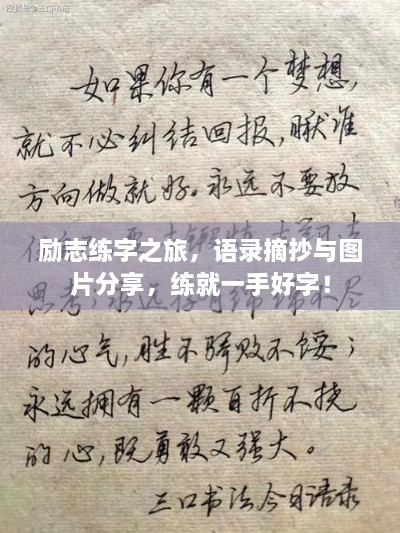 搜狐号@三口书法
如果你有一个梦想,
就不必纠结回报,瞅准
方向做就好。永远不要放
励志练字之旅，语录摘抄与图
片分享，练就一手好字！
思考;
不尽
的心气,胜不骄败不馁;
永远拥有一颗百折不挠
的心,既勇敢又强大。
三口书法今日语录